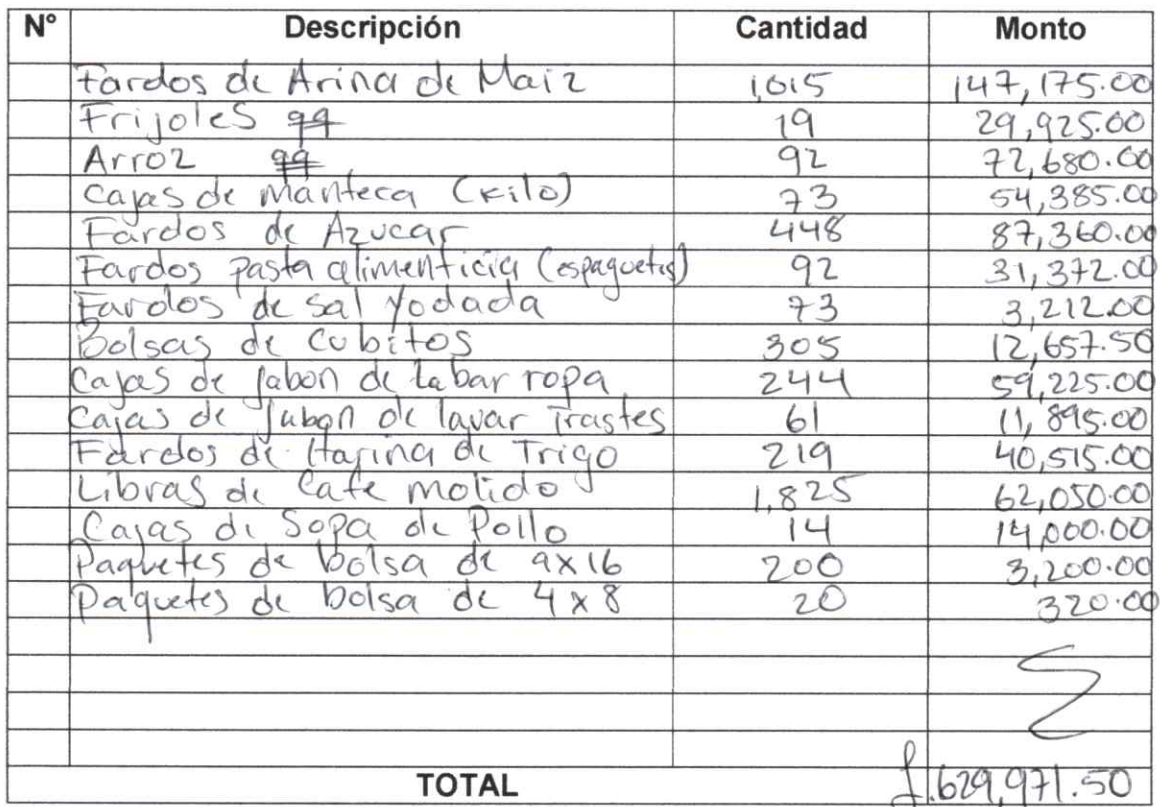 N° Descripción Cantidad Monto
Fardos de Arina de Maiz 1,015 147,175.00
Frijoles qq 19 29,925.00
Arroz qq 92 72,680.00
Cajas de Manteca (Kilo) 73 54,385.00
Fardos de Azucar 448 87,360.00
Fardos pasta alimenticia (espaguetis) 92 31,372.00
Fardos de Sal Yodada 73 3,212.00
Bolsas de Cubitos 305 12,657.50
Cajas de Jabon de Labar ropa 244 59,225.00
Cajas de Jabon de lavar Trastes 61 11,895.00
Fardos de Harina de Trigo 219 40,515.00
Libras de Cafe molido 1,825 62,050.00
Cajas de Sopa de Pollo 14 14,000.00
Paquetes de bolsa de 9x16 200 3,200.00
Paquetes de bolsa de 4x8 20 320.00
TOTAL L.629,971.50